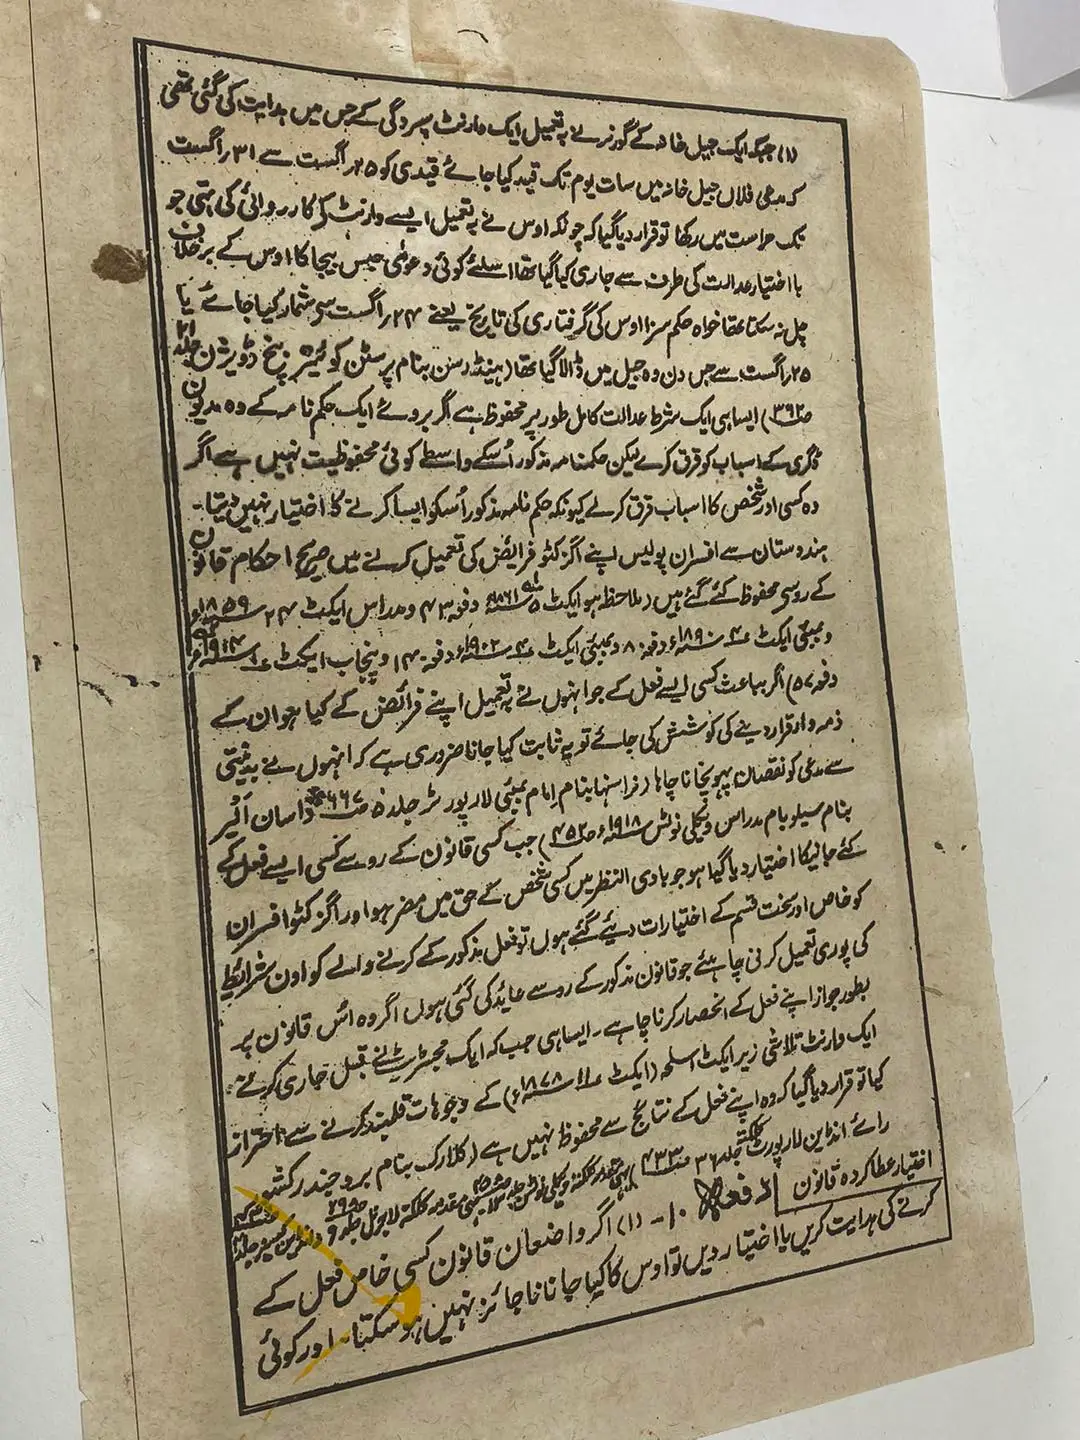 (۱) جبکہ ایک جیل خانہ کے گورنر نے بہ تعمیل ایک وارنٹ سپردگی کے جس میں ہدایت کی گئی تھی
کہ مدعی فلاں جیل خانہ میں سات یوم تک قید کیا جائے قیدی کو ۲۵؍ اگست سے ۳۱؍ اگست
تک حراست میں رکھا تو قرار دیا گیا کہ چونکہ اوس نے بہ تعمیل ایسے وارنٹ کے کارروائی کی تھی جو
با اختیار عدالت کی طرف سے جاری کیا گیا تھا اسلئے کوئی دعویٰ حبس بیجا کا اوس کے برخلاف
چل نہ سکتا تھا خواہ حکم سزا اوس کی گرفتاری کی تاریخ یعنے ۲۴؍ اگست سے شمار کیا جائے یا
۲۵؍ اگست سے جس دن وہ جیل میں ڈالا گیا تھا (ہینڈرسن بنام پرسٹن کوئینز بنچ ڈویژن جلد ۲۱
ص۳۶۲) ایسا ہی ایک شرط عدالت کامل طور پر محفوظ ہے اگر بروئے ایک حکم نامہ کے وہ مدیون
ڈگری کے اسباب کو قرق کرے لیکن حکمنامہ مذکور اُسکے واسطے کوئی محفوظیت نہیں ہے اگر
وہ کسی اور شخص کا اسباب قرق کرلے کیونکہ حکم نامہ مذکور اُسکو ایسا کرنے کا اختیار نہیں دیتا۔
ہندوستان سے افسران پولیس اپنے اگزکٹو فرائض کی تعمیل کرنے میں صریح احکام قانون
کے رو سے محفوظ کئے گئے ہیں (ملاحظہ ہو ایکٹ ۵ سنہ ۱۸۶۱ء دفعہ ۴۳ و مدراس ایکٹ ۲۴ سنہ ۱۸۵۹ء
و بمبئی ایکٹ ۴ سنہ ۱۸۹۰ء دفعہ ۸۰ و بمبئی ایکٹ ۴ سنہ ۱۹۰۲ء دفعہ ۱۴۰ و پنجاب ایکٹ
دفعہ ۵۷) اگر بباعث کسی ایسے فعل کے جو انہوں نے بہ تعمیل اپنے فرائض کے کیا ہو ان کے
ذمہ وار قرار دینے کی کوشش کی جائے تو یہ ثابت کیا جانا ضروری ہے کہ انہوں نے بدنیتی
سے مدعی کو نقصان پہونچانا چاہا (نراسنہا بنام امام بمبئی لا رپورٹر جلد ۵ ص۶۶۷
بنام سیلو بام مدراس ویکلی نوٹس سنہ ۱۹۱۸ء ص۴۵۲) جب کسی قانون کے رو سے کسی ایسے فعل کے
کئے جانیکا اختیار دیا گیا ہو جو بادی النظر میں کسی شخص کے حق میں مضر ہو اور اگزکٹو افسران
کو خاص اور سخت قسم کے اختیارات دیئے گئے ہوں تو فعل مذکور کے کرنے والے کو اون شرائط
کی پوری تعمیل کرنی چاہئے جو قانون مذکور کے رو سے عائد کی گئی ہوں اگر وہ اس قانون پر
بطور جواز اپنے فعل کے انحصار کرنا چاہے۔ ایسا ہی جب کہ ایک مجسٹریٹ نے قبل جاری کرنے
ایک وارنٹ تلاشی زیر ایکٹ اسلحہ (ایکٹ ۱۱ سنہ ۱۸۷۸ء) کے وجوہات قلمبند کرنے سے احتراز
کیا تو قرار دیا گیا کہ وہ اپنے فعل کے نتائج سے محفوظ نہیں ہے (کلارک بنام بروجیندر کشور
رائے انڈین لا رپورٹ کلکتہ جلد ۳۶ ص۴۳۳
اختیار عطا کردہ قانون دفعہ ۱۰۔ (۱) اگر واضعان قانون کسی خاص فعل کے
کرنے کی ہدایت کریں یا اختیار دیں تو اوس کا کیا جانا ناجائز نہیں ہو سکتا۔ اور کوئی